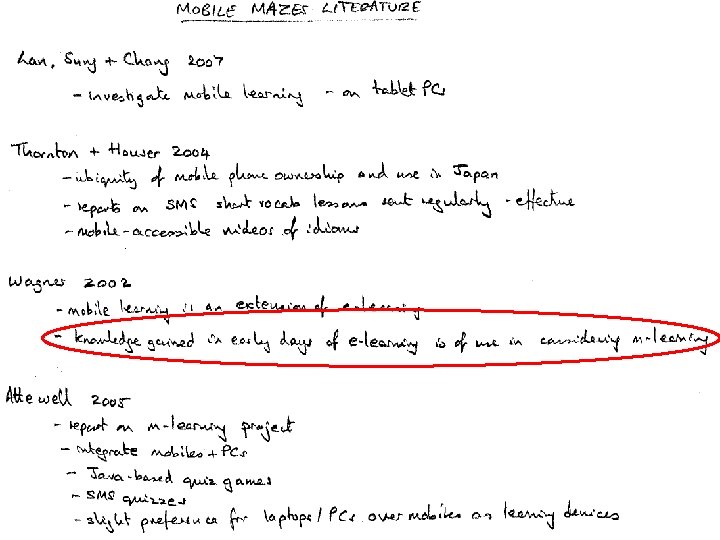 MOBILE MAZES LITERATURE
Lan, Sung + Chang 2007
- investigate mobile learning - on tablet PCs
Thornton + Houser 2004
- ubiquity of mobile phone ownership and use in Japan
- reports on SMS short vocab lessons sent regularly - effective
- mobile-accessible videos of idioms
Wagner 2002
- mobile learning is an extension of e-learning
- knowledge gained in early days of e-learning is of use in considering m-learning
Attewell 2005
- report on m-learning project
- integrate mobiles + PCs
- Java-based quiz games
- SMS quizzes
- slight preference for laptops/PCs over mobiles as learning devices